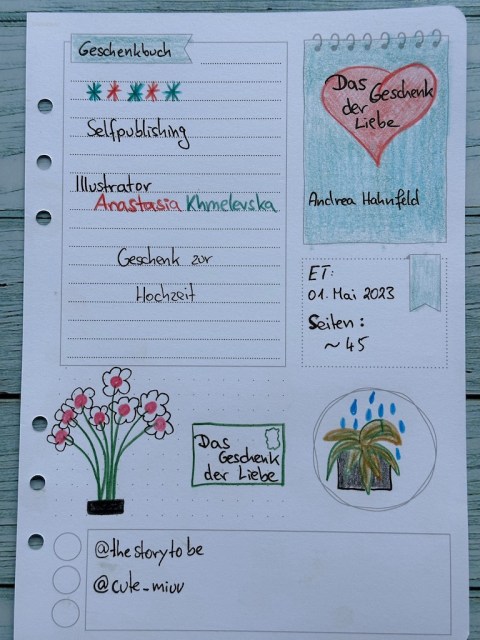 Geschenkbuch
Selfpublishing
Illustrator
Anastasia Khmelevska
Geschenk zur
Hochzeit
Das Geschenk
der
Liebe
Andrea Hahnfeld
ET:
01. Mai 2023
Seiten:
~ 45
Das
Geschenk
der Liebe
@thestorytobe
@cute_miuu